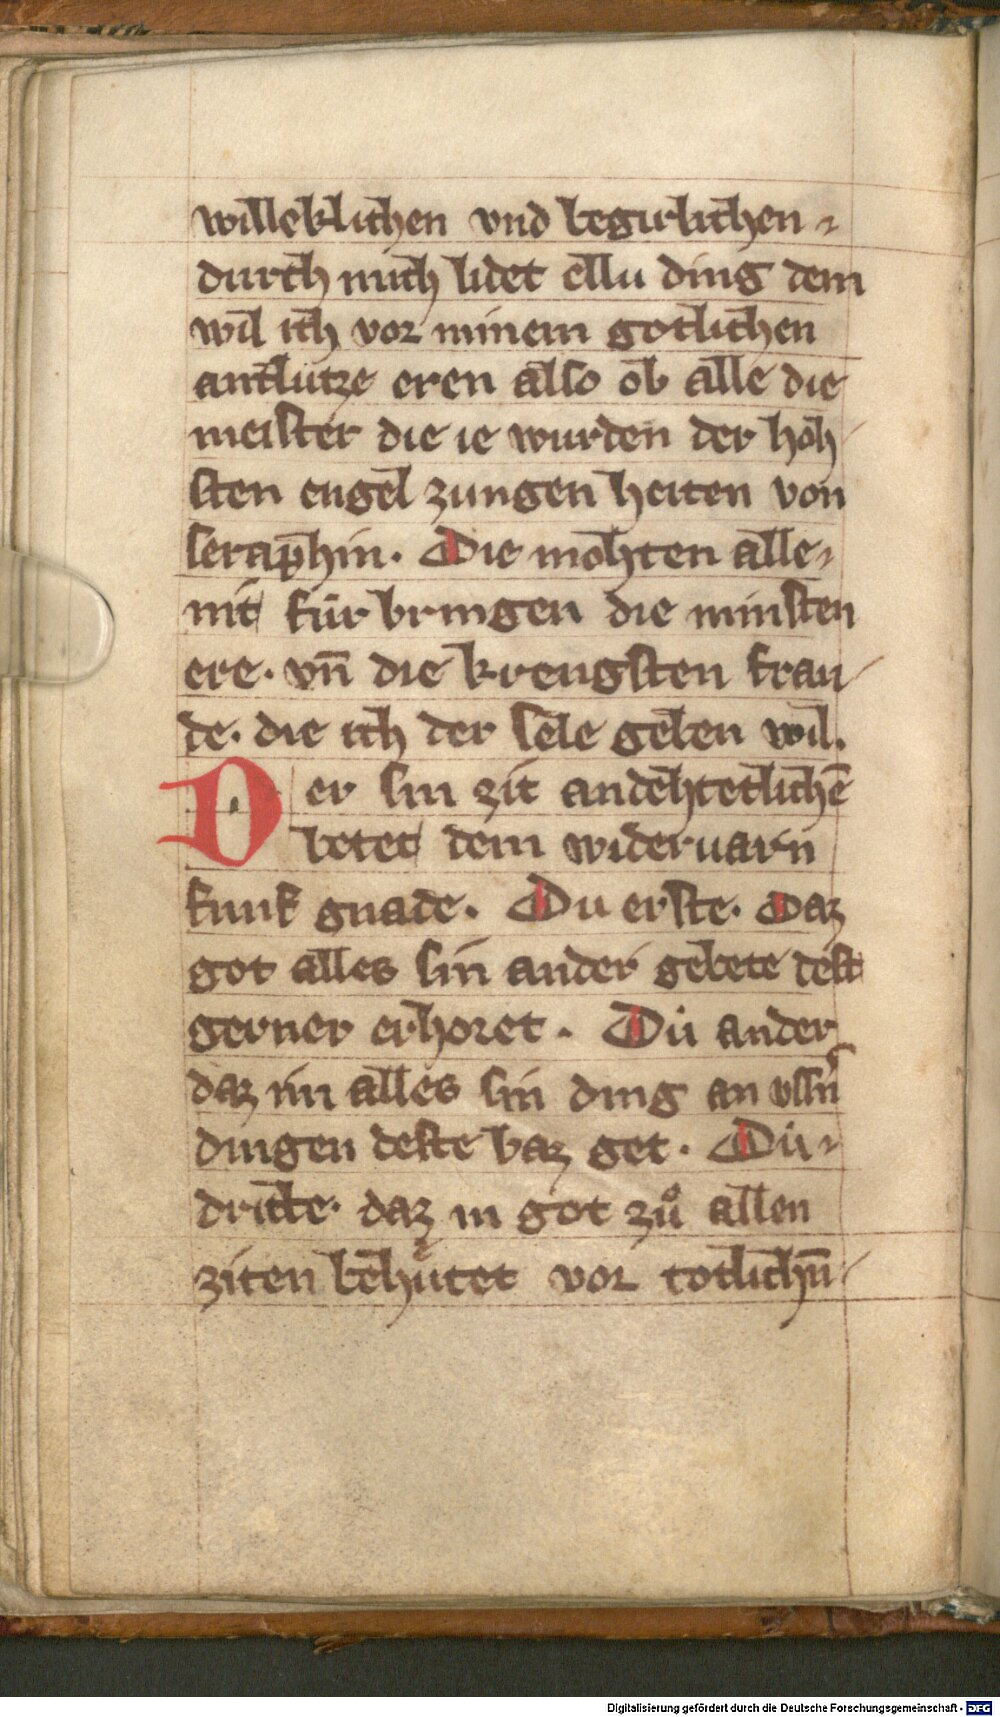 willeklichen vnd begirlichen
durch mich lidet ellu ding dem
wil ich vor minem gotlichen
antlutze eren also ob alle die
meister die ie wurden der hoh
sten engel zungen heiten von
seraphin. Die mohten alle
nit für bringen die minsten
ere. vn̄ die krengsten frau
de. die ich der sele geben wil.
Der sin zit andehtetlichē
betet dem wideruarn
funf gnade. Du erste. Daz
got alles sin ander gebete dest
gerner erhoret. Dü ander
daz im alles sin ding an vssn̄
dingen deste baz get. Dü
dritte. daz in got zuͦ allen
ziten behuͤtet vor totlichn̄
Digitalisierung gefördert durch die Deutsche Forschungsgemeinschaft - DFG